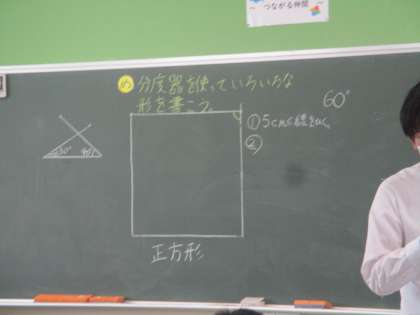 つながる仲間
め 分度器を使っていろいろな
形を書こう。
60°
①5cmの線をひく。
②
30° 40°
正方形